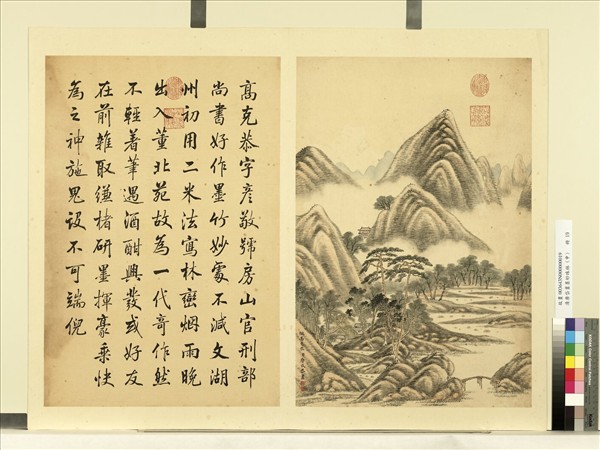 高克恭字彥敬歸房山官刑部
尚書好作墨竹妙處不減文湖
州初用二米法寫林巒烟雨晚
出入董北苑故為一代奇作然
不輕著筆遇酒酣興發或好友
在前雜取縑楮研墨揮豪乘快
為之神施鬼設不可端倪